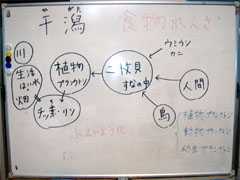 がた
干潟
食物れんさ
川
生活
はい水
畑
植物
プランクトン
二枚貝
すなの中
ウミウシ
カニ
人間
チッ素・リン
鳥
ふえいよう化
植物プランクトン
動物プランクトン